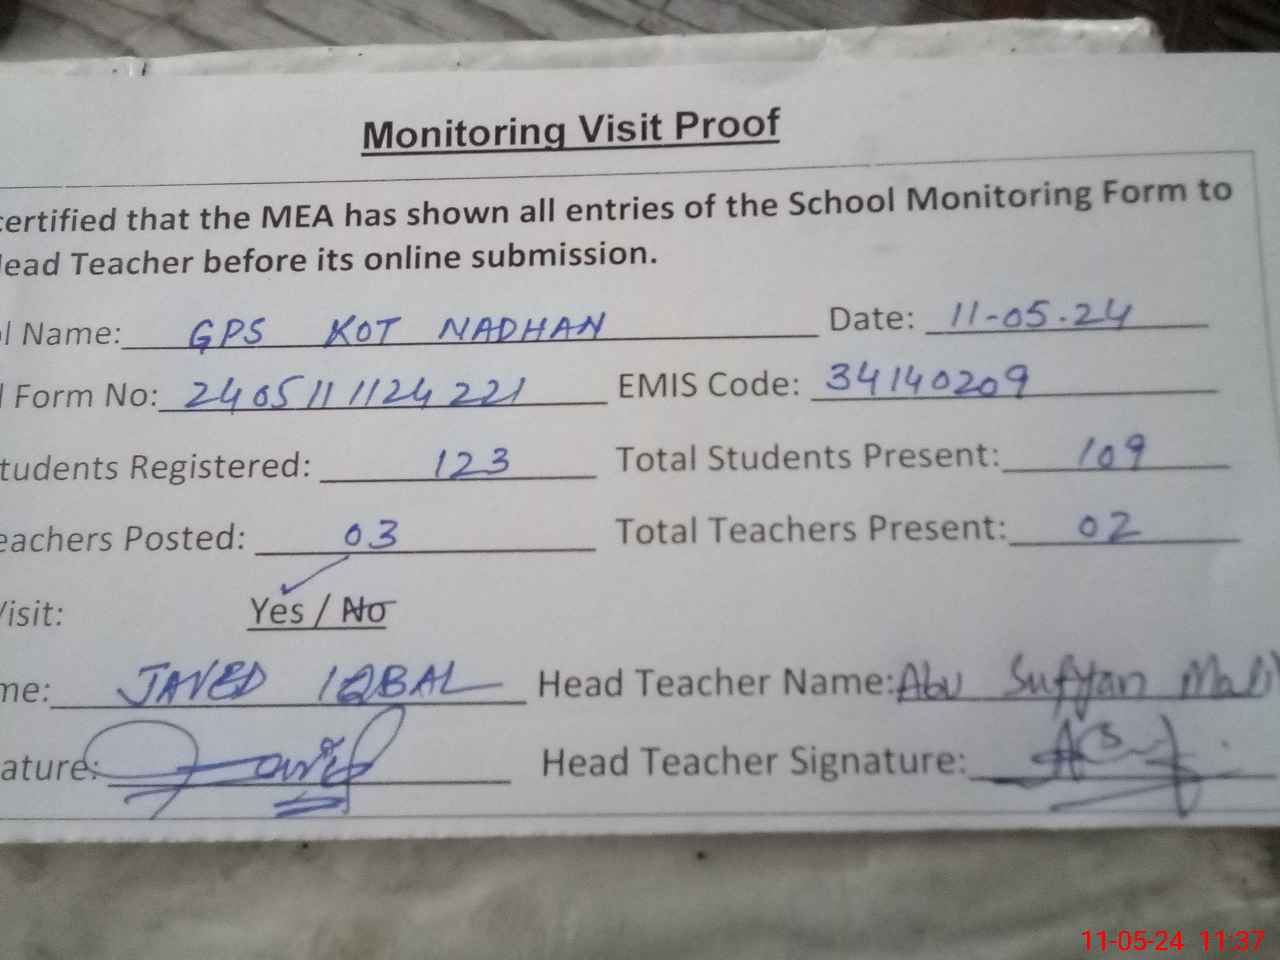 Monitoring Visit Proof
certified that the MEA has shown all entries of the School Monitoring Form to
Head Teacher before its online submission.
l Name: GPS KOT NADHAN Date: 11-05-24
Form No: 2405111124221 EMIS Code: 34140209
tudents Registered: 123 Total Students Present: 109
eachers Posted: 03 Total Teachers Present: 02
Visit: Yes / No
me: JAVED IQBAL Head Teacher Name: Abu Sufyan Mali
ature: Head Teacher Signature:
11-05-24 11:37